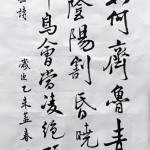 如何齊魯青
陰陽割昏曉
鳥會當凌絕
歲次乙未孟春